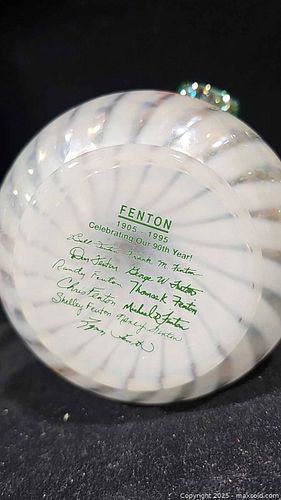 FENTON
1905 - 1995
Celebrating Our 90th Year!
Bill Fenton Frank M. Fenton
Don Fenton George W. Fenton
Randy Fenton Thomas K. Fenton
Chris Fenton Michael D. Fenton
Shelley Fenton Nancy Fenton
Lynn
Copyright 2025 - maxsold.com